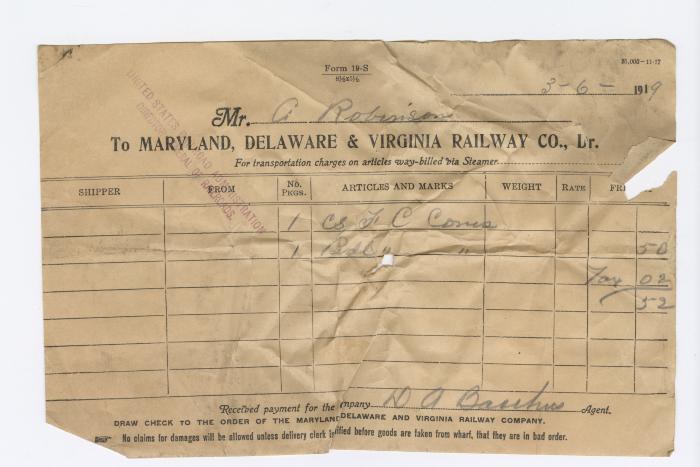 Form 19-S
35,000-11-17
3-6- 1919
Mr. A Robinson
To MARYLAND, DELAWARE & VIRGINIA RAILWAY CO., Dr.
For transportation charges on articles way-billed via Steamer
UNITED STATES RAILROAD ADMINISTRATION
DIRECTOR GENERAL OF RAILROADS.
SHIPPER FROM No. PKGS. ARTICLES AND MARKS WEIGHT RATE FRE
1 cs I C Cones
1 Bdl " " 50
Tax 02
52
Received payment for the mpany D A Agent.
DRAW CHECK TO THE ORDER OF THE MARYLAND DELAWARE AND VIRGINIA RAILWAY COMPANY.
No claims for damages will be allowed unless delivery clerk is tified before goods are taken from wharf, that they are in bad order.